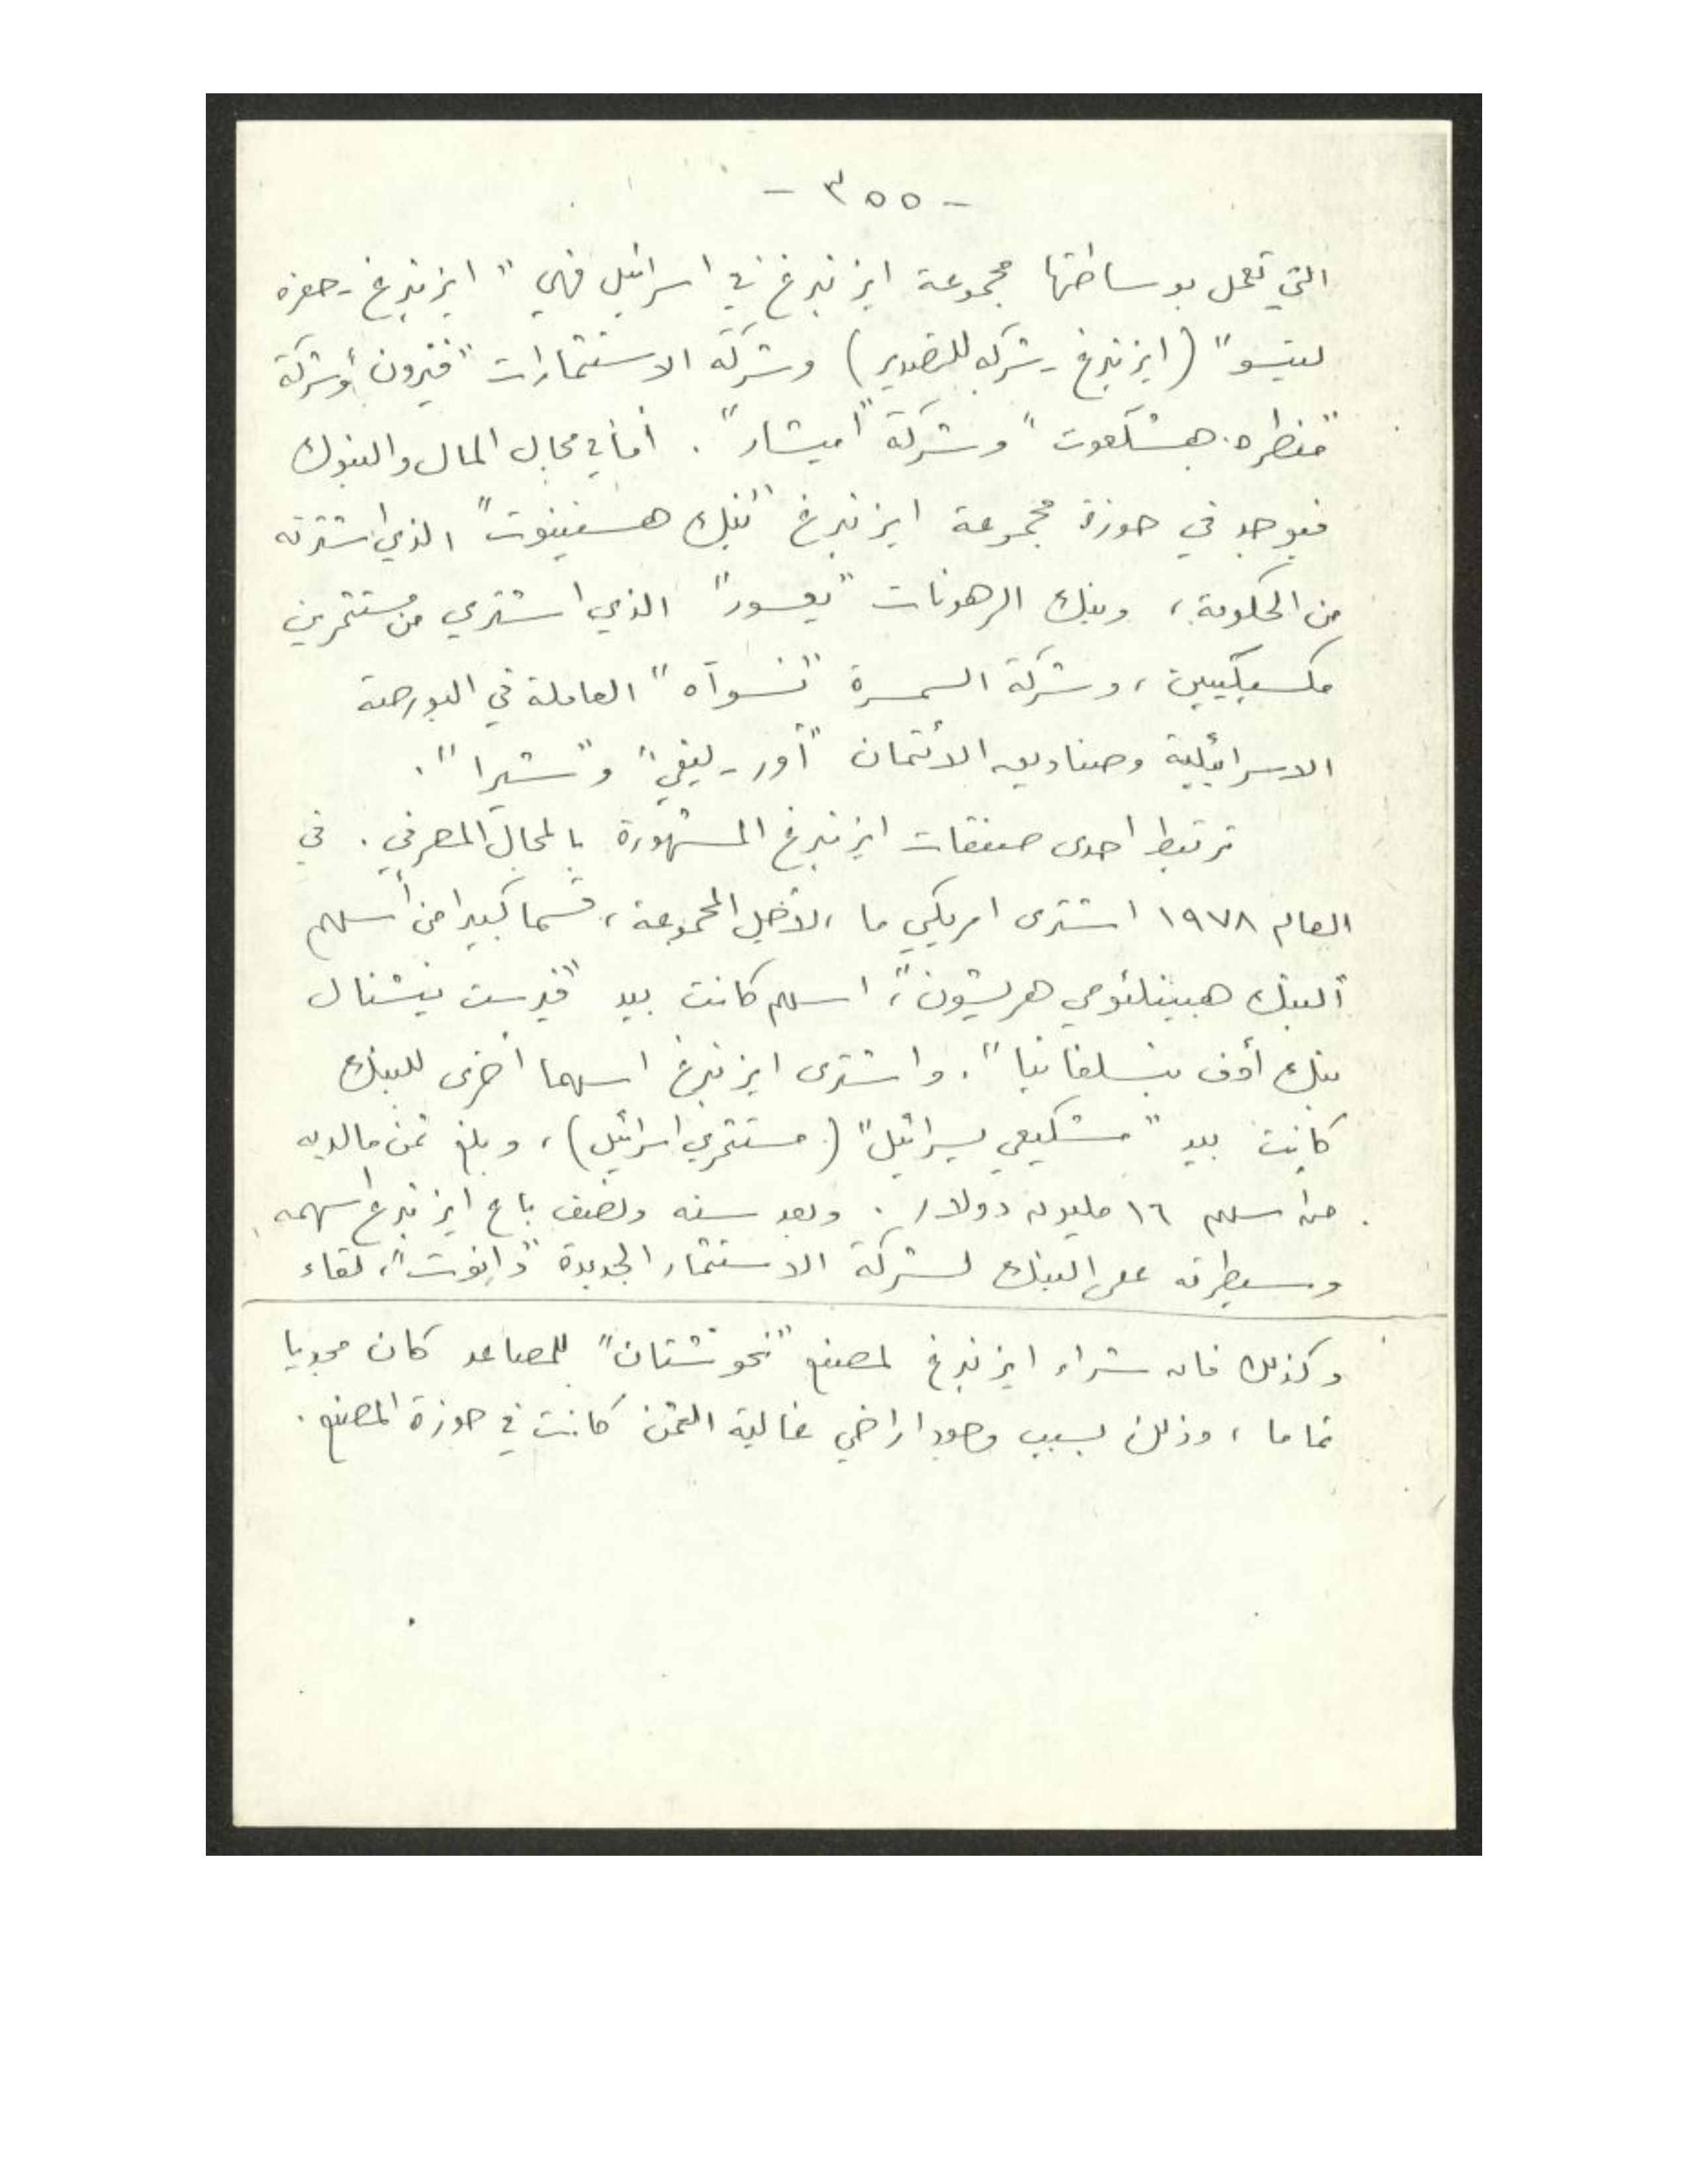 - ٣٥٥ -
التي تعمل بوساطتها مجموعة ايزنبرغ في اسرائيل فهي " ايزنبرغ - حفره
ليتسو" (ايزنبرغ - شركة للتصدير) وشركة الاستثمارات "فيرون" وشركة
"منطره هشكعوت" وشركة "اميشار". أما في مجال المال والبنوك
فيوجد في حوزة مجموعة ايزنبرغ "بنك هسفينوت" الذي اشترته
من الحكومة، وبنك الرهونات "يعسور" الذي اشتري من مستثمرين
مكسيكيين، وشركة السمسرة "تسوآه" العاملة في البورصة
الاسرائيلية وصناديق الأئتمان "أور - ليفي" و "شيرا".
ترتبط احدى صفقات ايزنبرغ المشهورة بالمجال المصرفي. في
العام ١٩٧٨ اشترى امريكي ما، لأجل المجموعة، قسما كبيرا من أسهم
"البنك هبينلئومي هريشون"، اسهم كانت بيد "فيرست نيشنال
بنك أوف بنسلفانيا". واشترى ايزنبرغ اسهما أخرى للبنك
كانت بيد "مشكيعي يسرائيل" (مستثمري اسرائيل)، وبلغ ثمن مالديه
من اسهم ١٦ مليون دولار. وبعد سنه ونصف باع ايزنبرغ اسهمه
وسيطرته على البنك لشركة الاستثمار الجديدة "دانوت"، لقاء
وكذلك فان شراء ايزنبرغ لمصنع "نحوشتان" للمصاعد كان مجديا
تماما، وذلك بسبب وجود اراضي غالية الثمن كانت في حوزة المصنع.